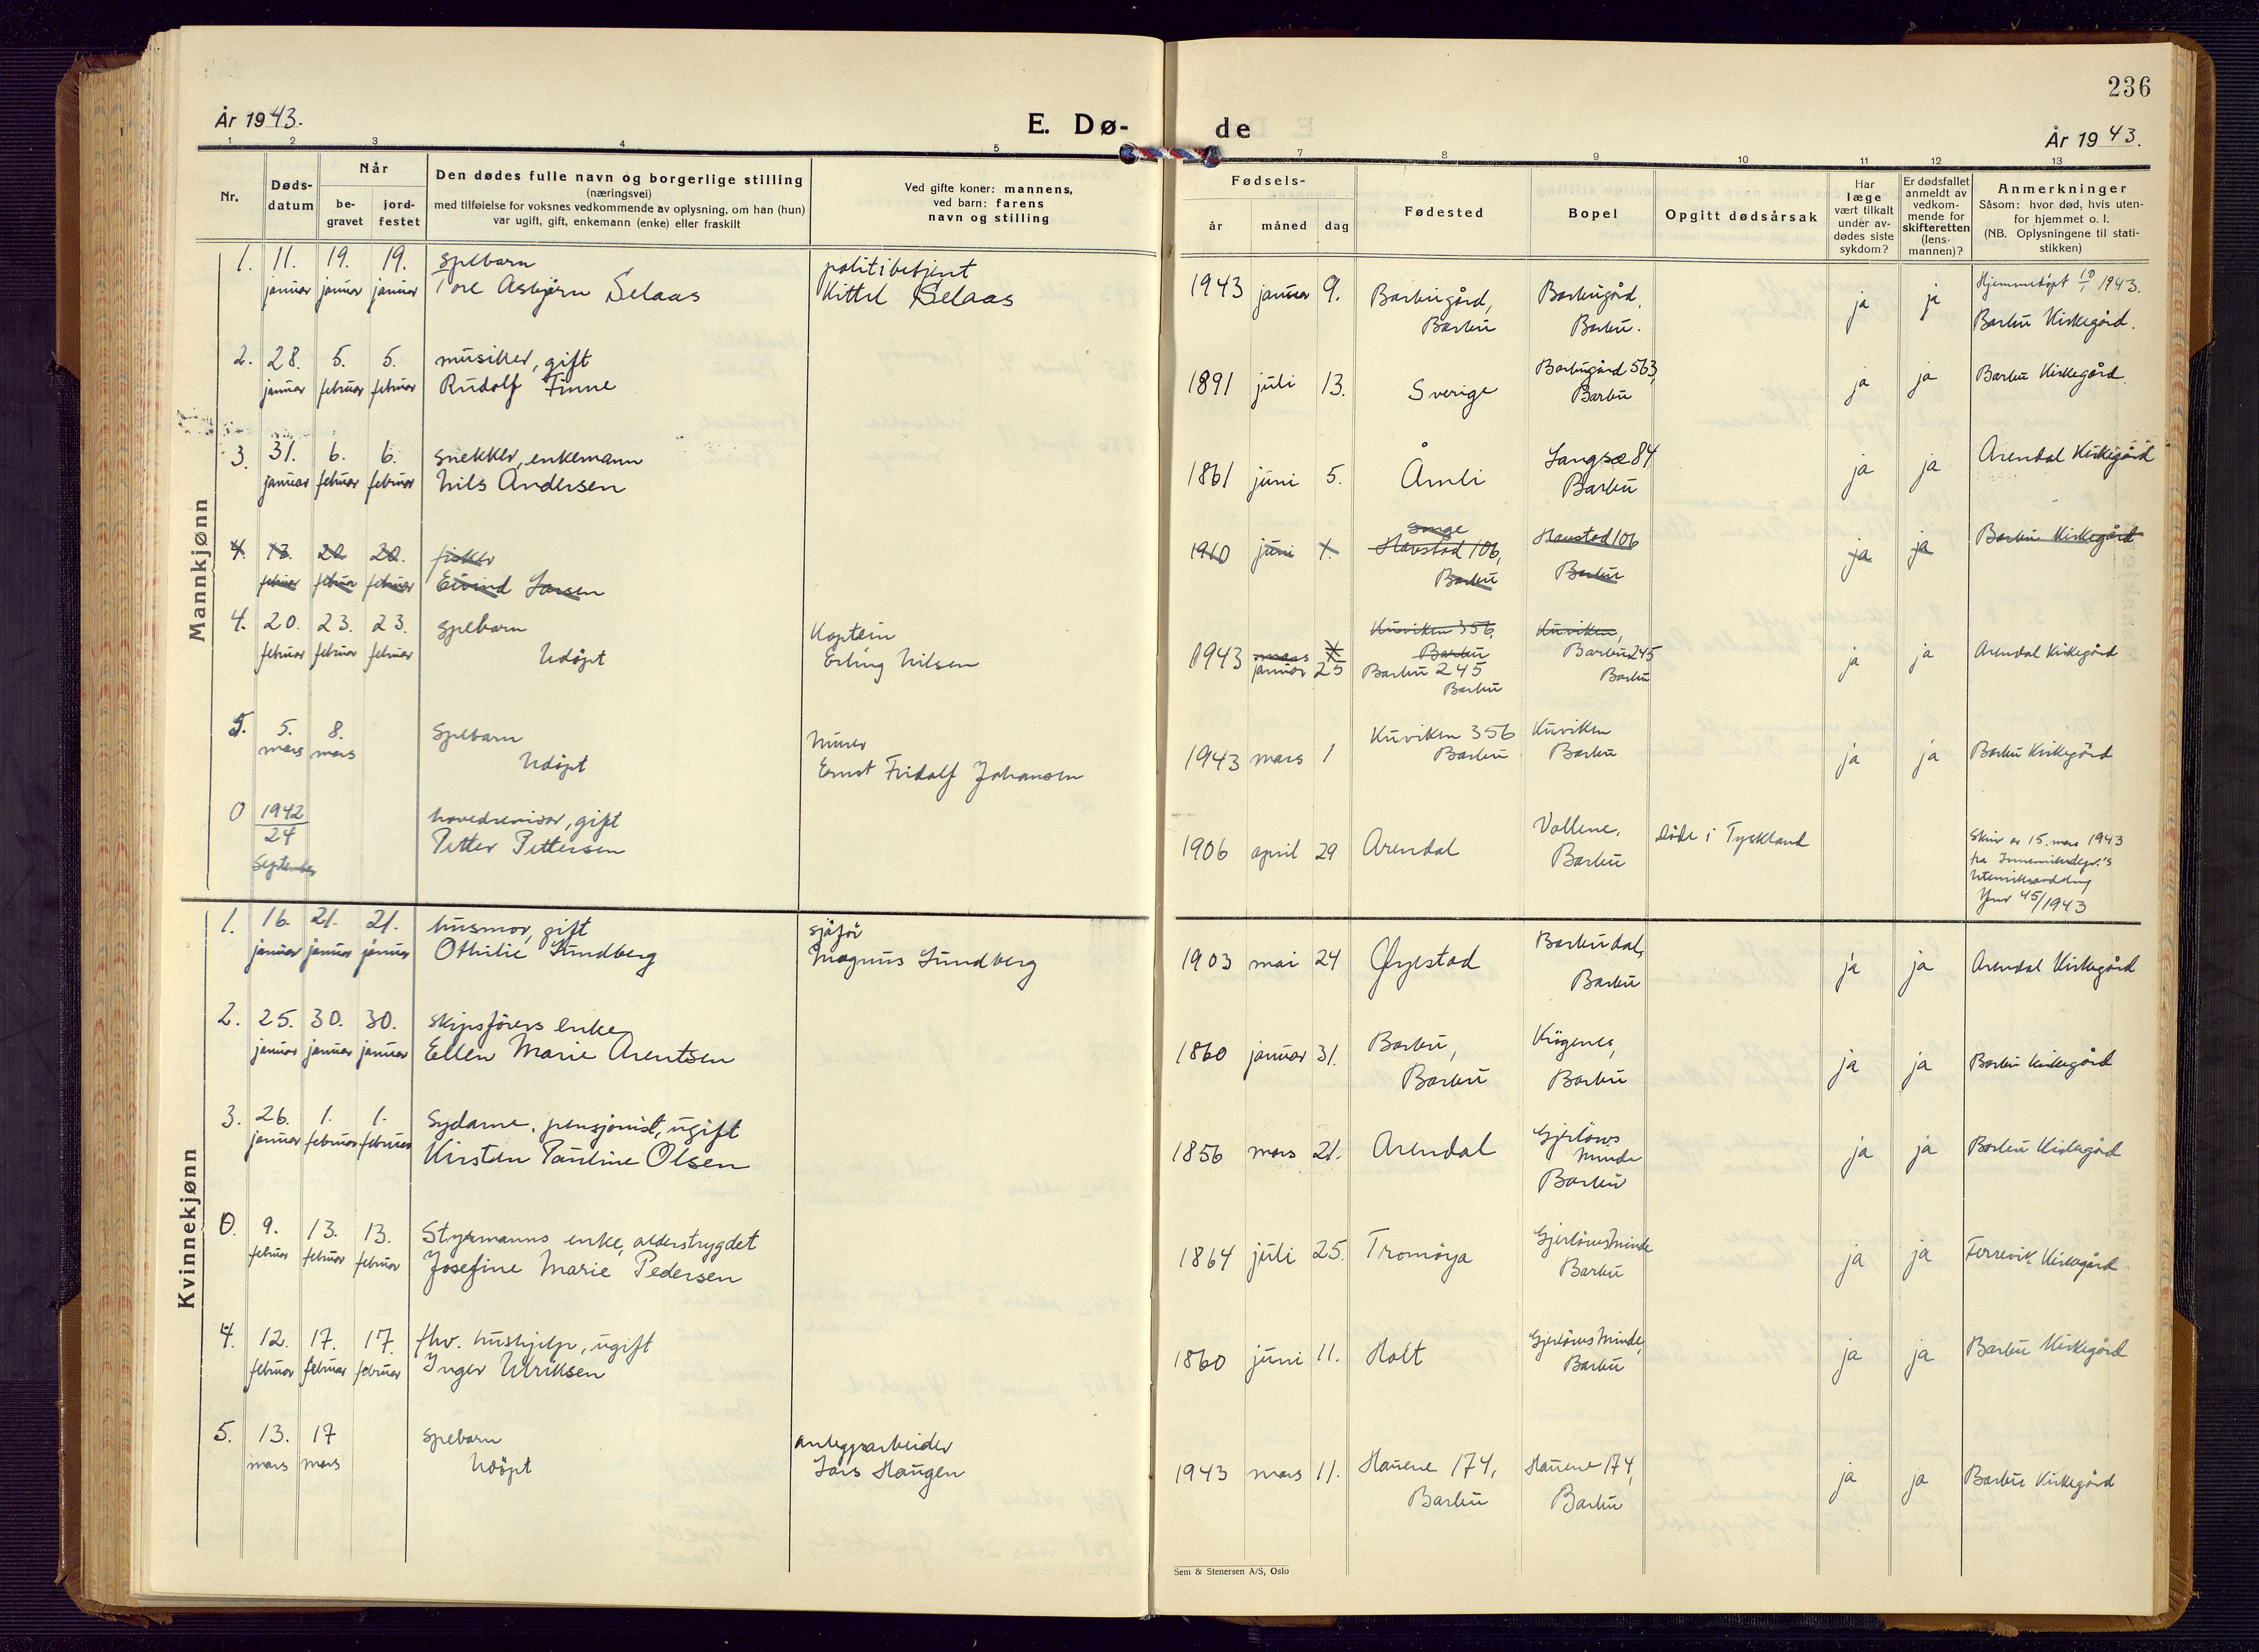 236
År 1943.
E. Dø-
de
År 1943.
1 2 3 4 5 7 8 9 10 11 12 13
Nr.
Døds-
datum
Når
be-
gravet
jord-
festet
Den dødes fulle navn og borgerlige stilling
(næringsvei)
med tilføielse for voksnes vedkommende av oplysning, om han (hun)
var ugift, gift, enkemann (enke) eller fraskilt
Ved gifte koner: mannens,
ved barn: farens
navn og stilling
Fødsels-
år måned dag
Fødested
Bopel
Opgitt dødsårsak
Har
læge
vært tilkalt
under av-
dødes siste
sykdom?
Er dødsfallet
anmeldt av
vedkom-
mende for
skifteretten
(lens-
mannen)?
Anmerkninger
Såsom: hvor død, hvis uten-
for hjemmet o. l.
(NB. Oplysningene til stati-
stikken)
Mannkjønn
1. 11. 19. 19. spebarn politibetjent
januar januar januar Tore Asbjørn Selaas Kittil Selaas
1943 januar 9. Barbugård, Barbugård, ja ja Hjemmedøpt 10/1 1943.
Barbu Barbu. Barbu Kirkegård.
2. 28. 5. 5. musiker, gift
januar februar februar Rudolf Finne
1891 juli 13. Sverige Barbugård 563, ja ja Barbu Kirkegård.
Barbu
3. 31. 6. 6. snekker, enkemann
januar februar februar Nils Andersen
1861 juni 5. Åmli Langsæ 84 ja ja Arendal Kirkegård
Barbu
4. 13. 20. 20. fisker
februar februar februar Eivind Larsen
1910 juni 1. Songe
Havstad 106, Havstad 106 ja ja Barbu Kirkegård
Barbu Barbu
4. 20. 23. 23. spebarn Kaptein
februar februar februar Udøpt Erling Nilsen
Kuviken 356, Kuviken,
1943 mars Barbu Barbu 245 ja ja Arendal Kirkegård
januar 25 Barbu 245 Barbu
Barbu
5. 5. 8. spebarn murer
mars mars Udøpt Ernst Fridolf Johansen
1943 mars 1 Kuviken 356 Kuviken ja ja Barbu Kirkegård
Barbu Barbu
0 1942 hovedrevisor, gift
24 Petter Pettersen
September
1906 april 29 Arendal Vollene, døde i Tyskland Skriv av 15. mars 1943
Barbu fra Innenriksdep.'s
45/1943
Kvinnekjønn
1. 16. 21. 21. husmor, gift sjåfør
januar januar januar Othilie Lundberg Magnus Lundberg
1903 mai 24 Øyestad Barbudal, ja ja Arendal Kirkegård
Barbu
2. 25. 30. 30. skipsførers enke
januar januar januar Ellen Marie Arentsen
1860 januar 31. Barbu, Krøgenes, ja ja Barbu Kirkegård
Barbu Barbu
3. 26. 1. 1. Sydame, pensjonist, ugift
januar februar februar Kirsten Pauline Olsen
1856 mars 21. Arendal Gjerløws ja ja Barbu Kirkegård
Minde
Barbu
0. 9. 13. 13. Styrmanns enke, alderstrygdet
februar februar februar Josefine Marie Pedersen
1864 juli 25. Tromøya Gjerløws Minde ja ja Færevik Kirkegård
Barbu
4. 12. 17. 17. fhv. hushjelp, ugift
februar februar februar Inger Ulriksen
1860 juni 11. Holt Gjerløws Minde, ja ja Barbu Kirkegård
Barbu
5. 13. 17 spebarn anleggsarbeider
mars mars Udøpt Lars Haugen
1943 mars 11. Hauene 174, Hauene 174, ja ja Barbu Kirkegård
Barbu Barbu
Sem & Stenersen A/S, Oslo